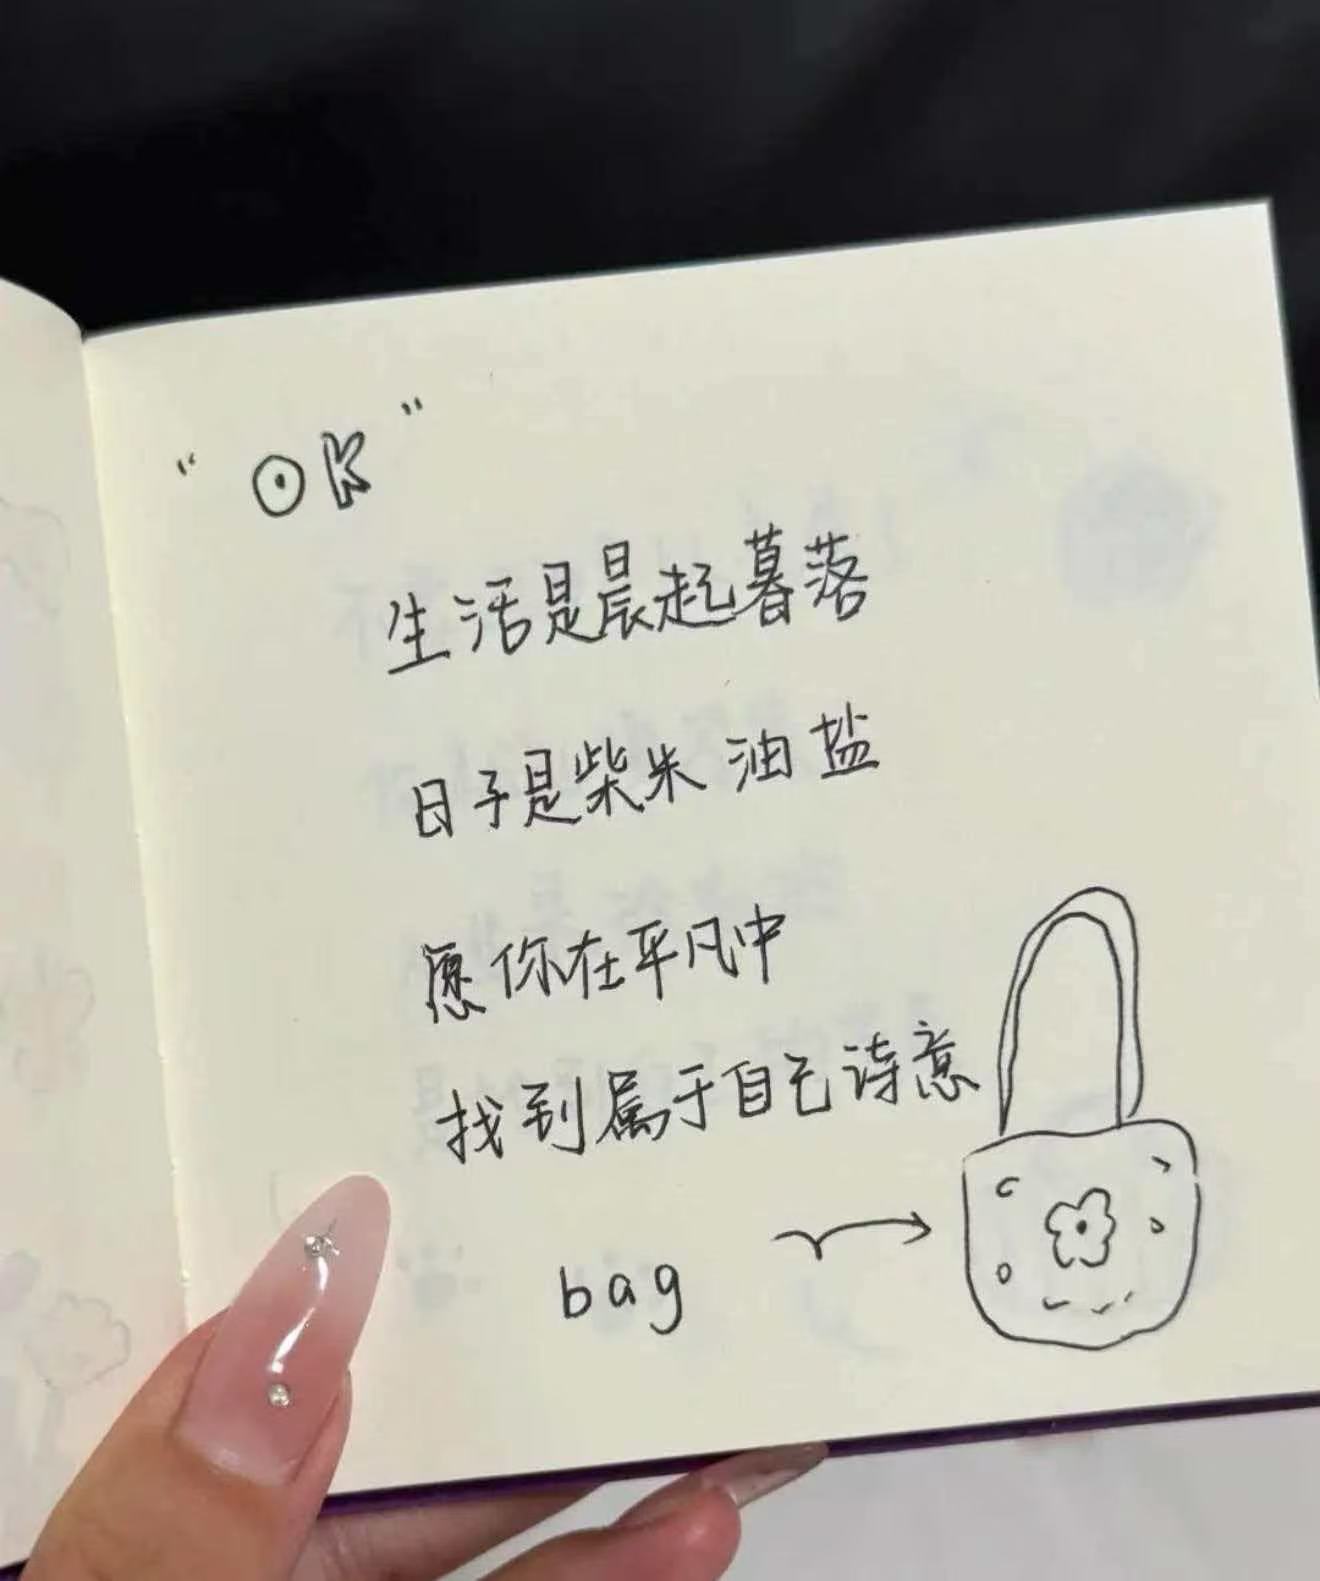 “OK”
生活是晨起暮落
日子是柴米油盐
愿你在平凡中
找到属于自己诗意
bag